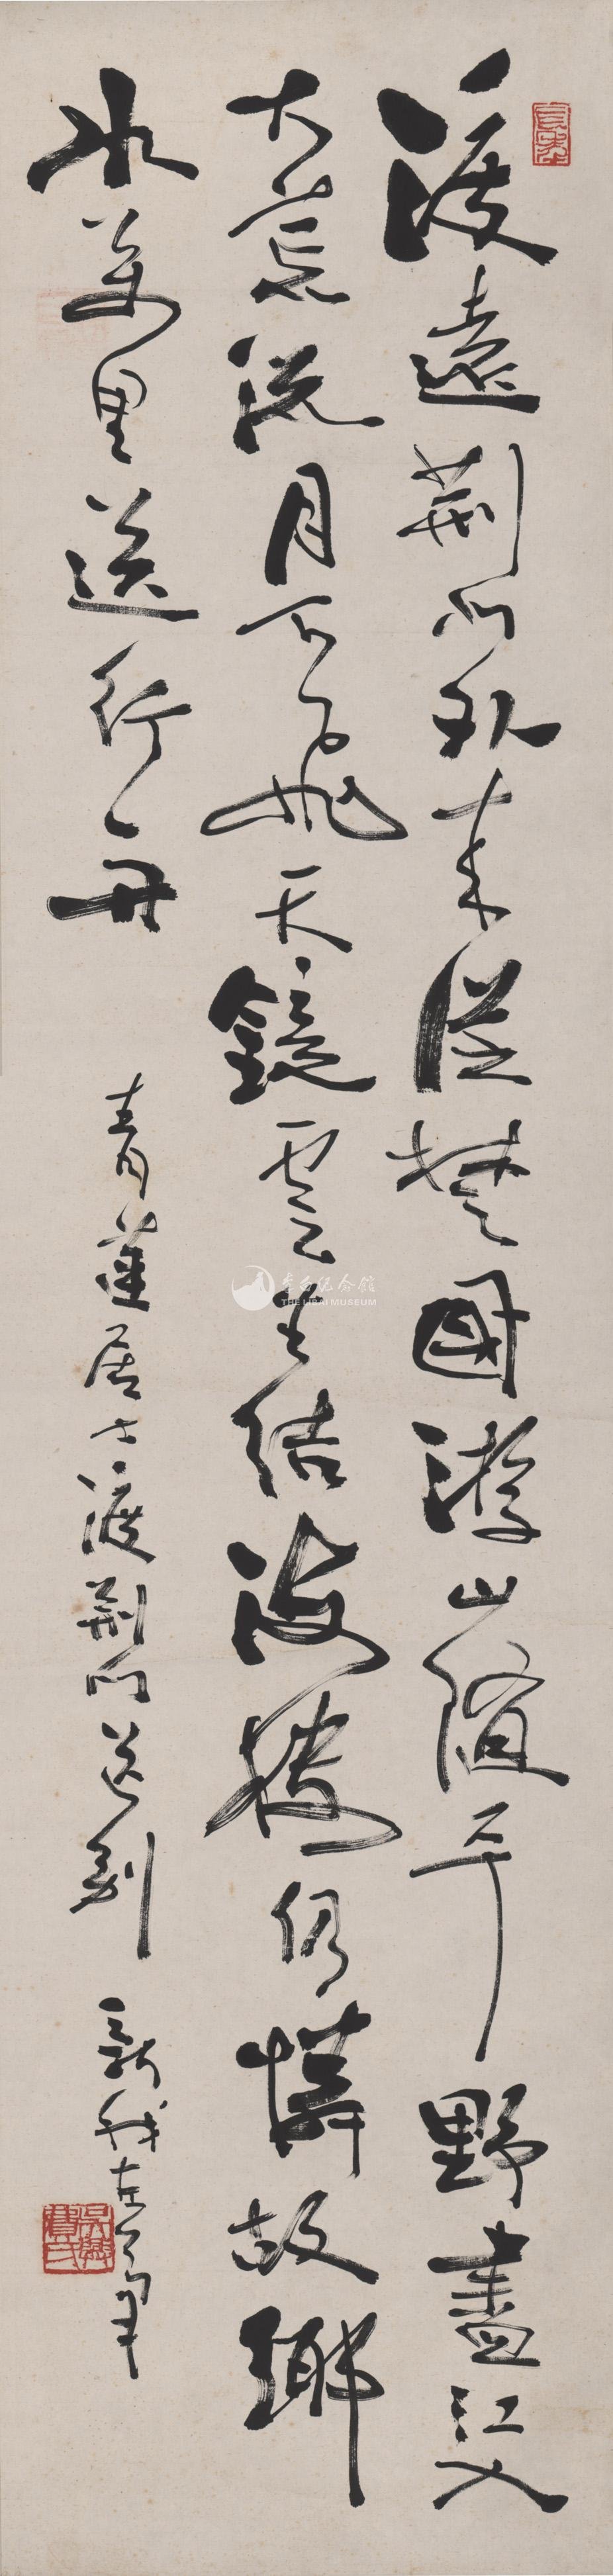 渡遠荆門外来從楚國游山随平野盡江入
大荒流月下飛天鏡雲生結海樓仍憐故鄉
水萬里送行舟
青蓮居士渡荆門送别
新我左筆
吳興費氏
李白纪念馆
THE LIBAI MUSEUM